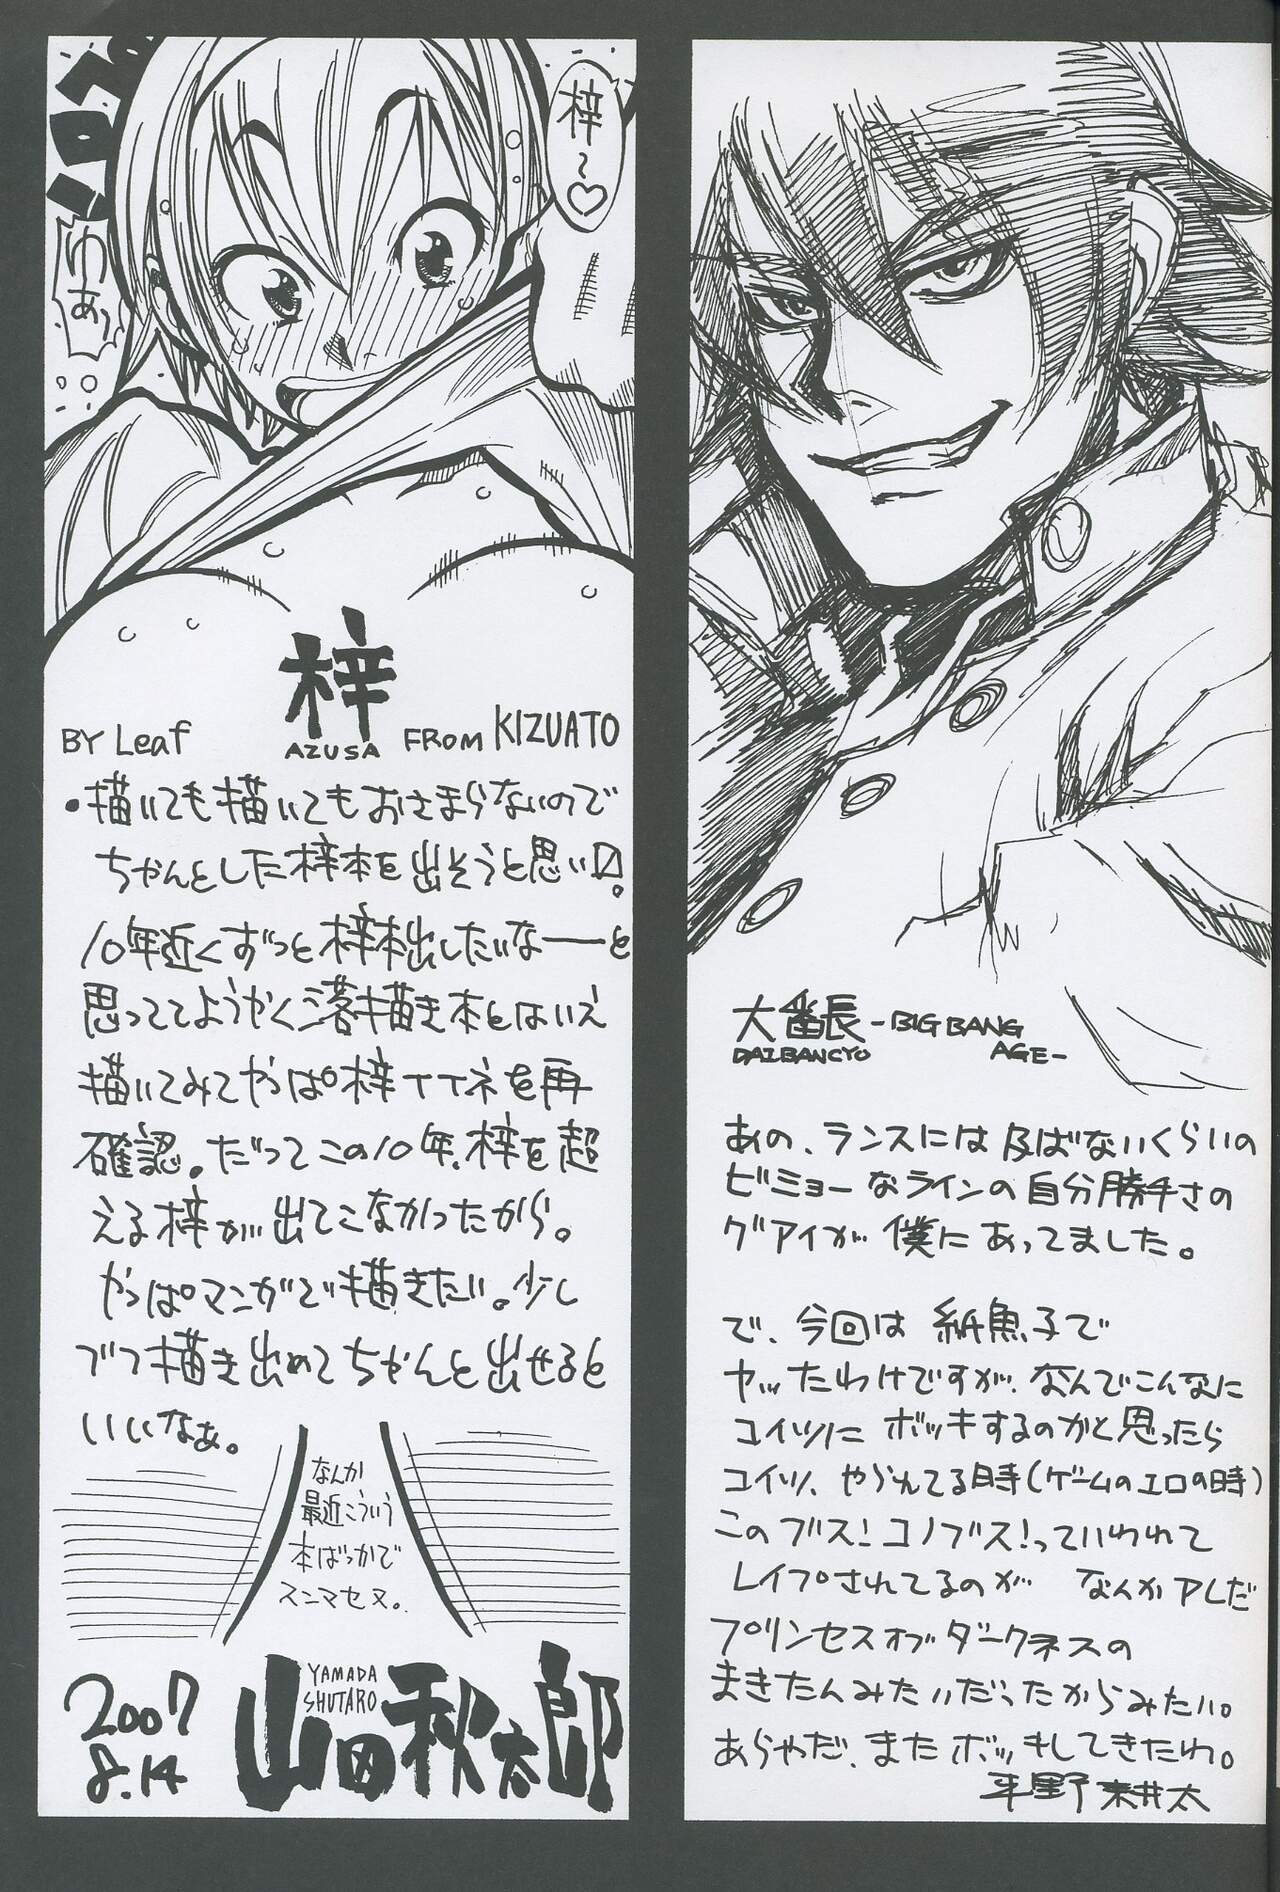 大番長 -BIG BANG
DAIBANCYO AGE-
あの、ランスには及ばないくらいの
ビミョーなラインの自分勝手さの
グアイが僕にあってました。
で、今回は紙魚子で
ヤッたわけですが、なんでこんなに
コイツにボッキするのかと思ったら
コイツ、やられてる時(ゲームのエロの時)
このブス!コノブス!っていわれて
レイプされてるのが なんかアレだ
プリンセスオブダークネスの
まきたんみたいだったからみたい。
あらやだ、またボッキしてきたわ。
平野耕太
梓〜♡
ゆあっ
梓
BY Leaf AZUSA FROM KIZUATO
・描いても描いてもおさまらないので
ちゃんとした梓本を出そうと思い〼。
10年近くずっと梓本出したいなーーと
思っててようやく落描き本とはいえ
描いてみてやっぱ梓イイネを再
確認。だってこの10年、梓を超
える梓が出てこなかったから。
やっぱマンガで描きたい。少し
ずつ描き出めてちゃんと出せると
いいなぁ。
なんか
最近こういう
本ばっかで
スンマセヌ。
2007
8.14
YAMADA
SHUTARO
山田秋太郎